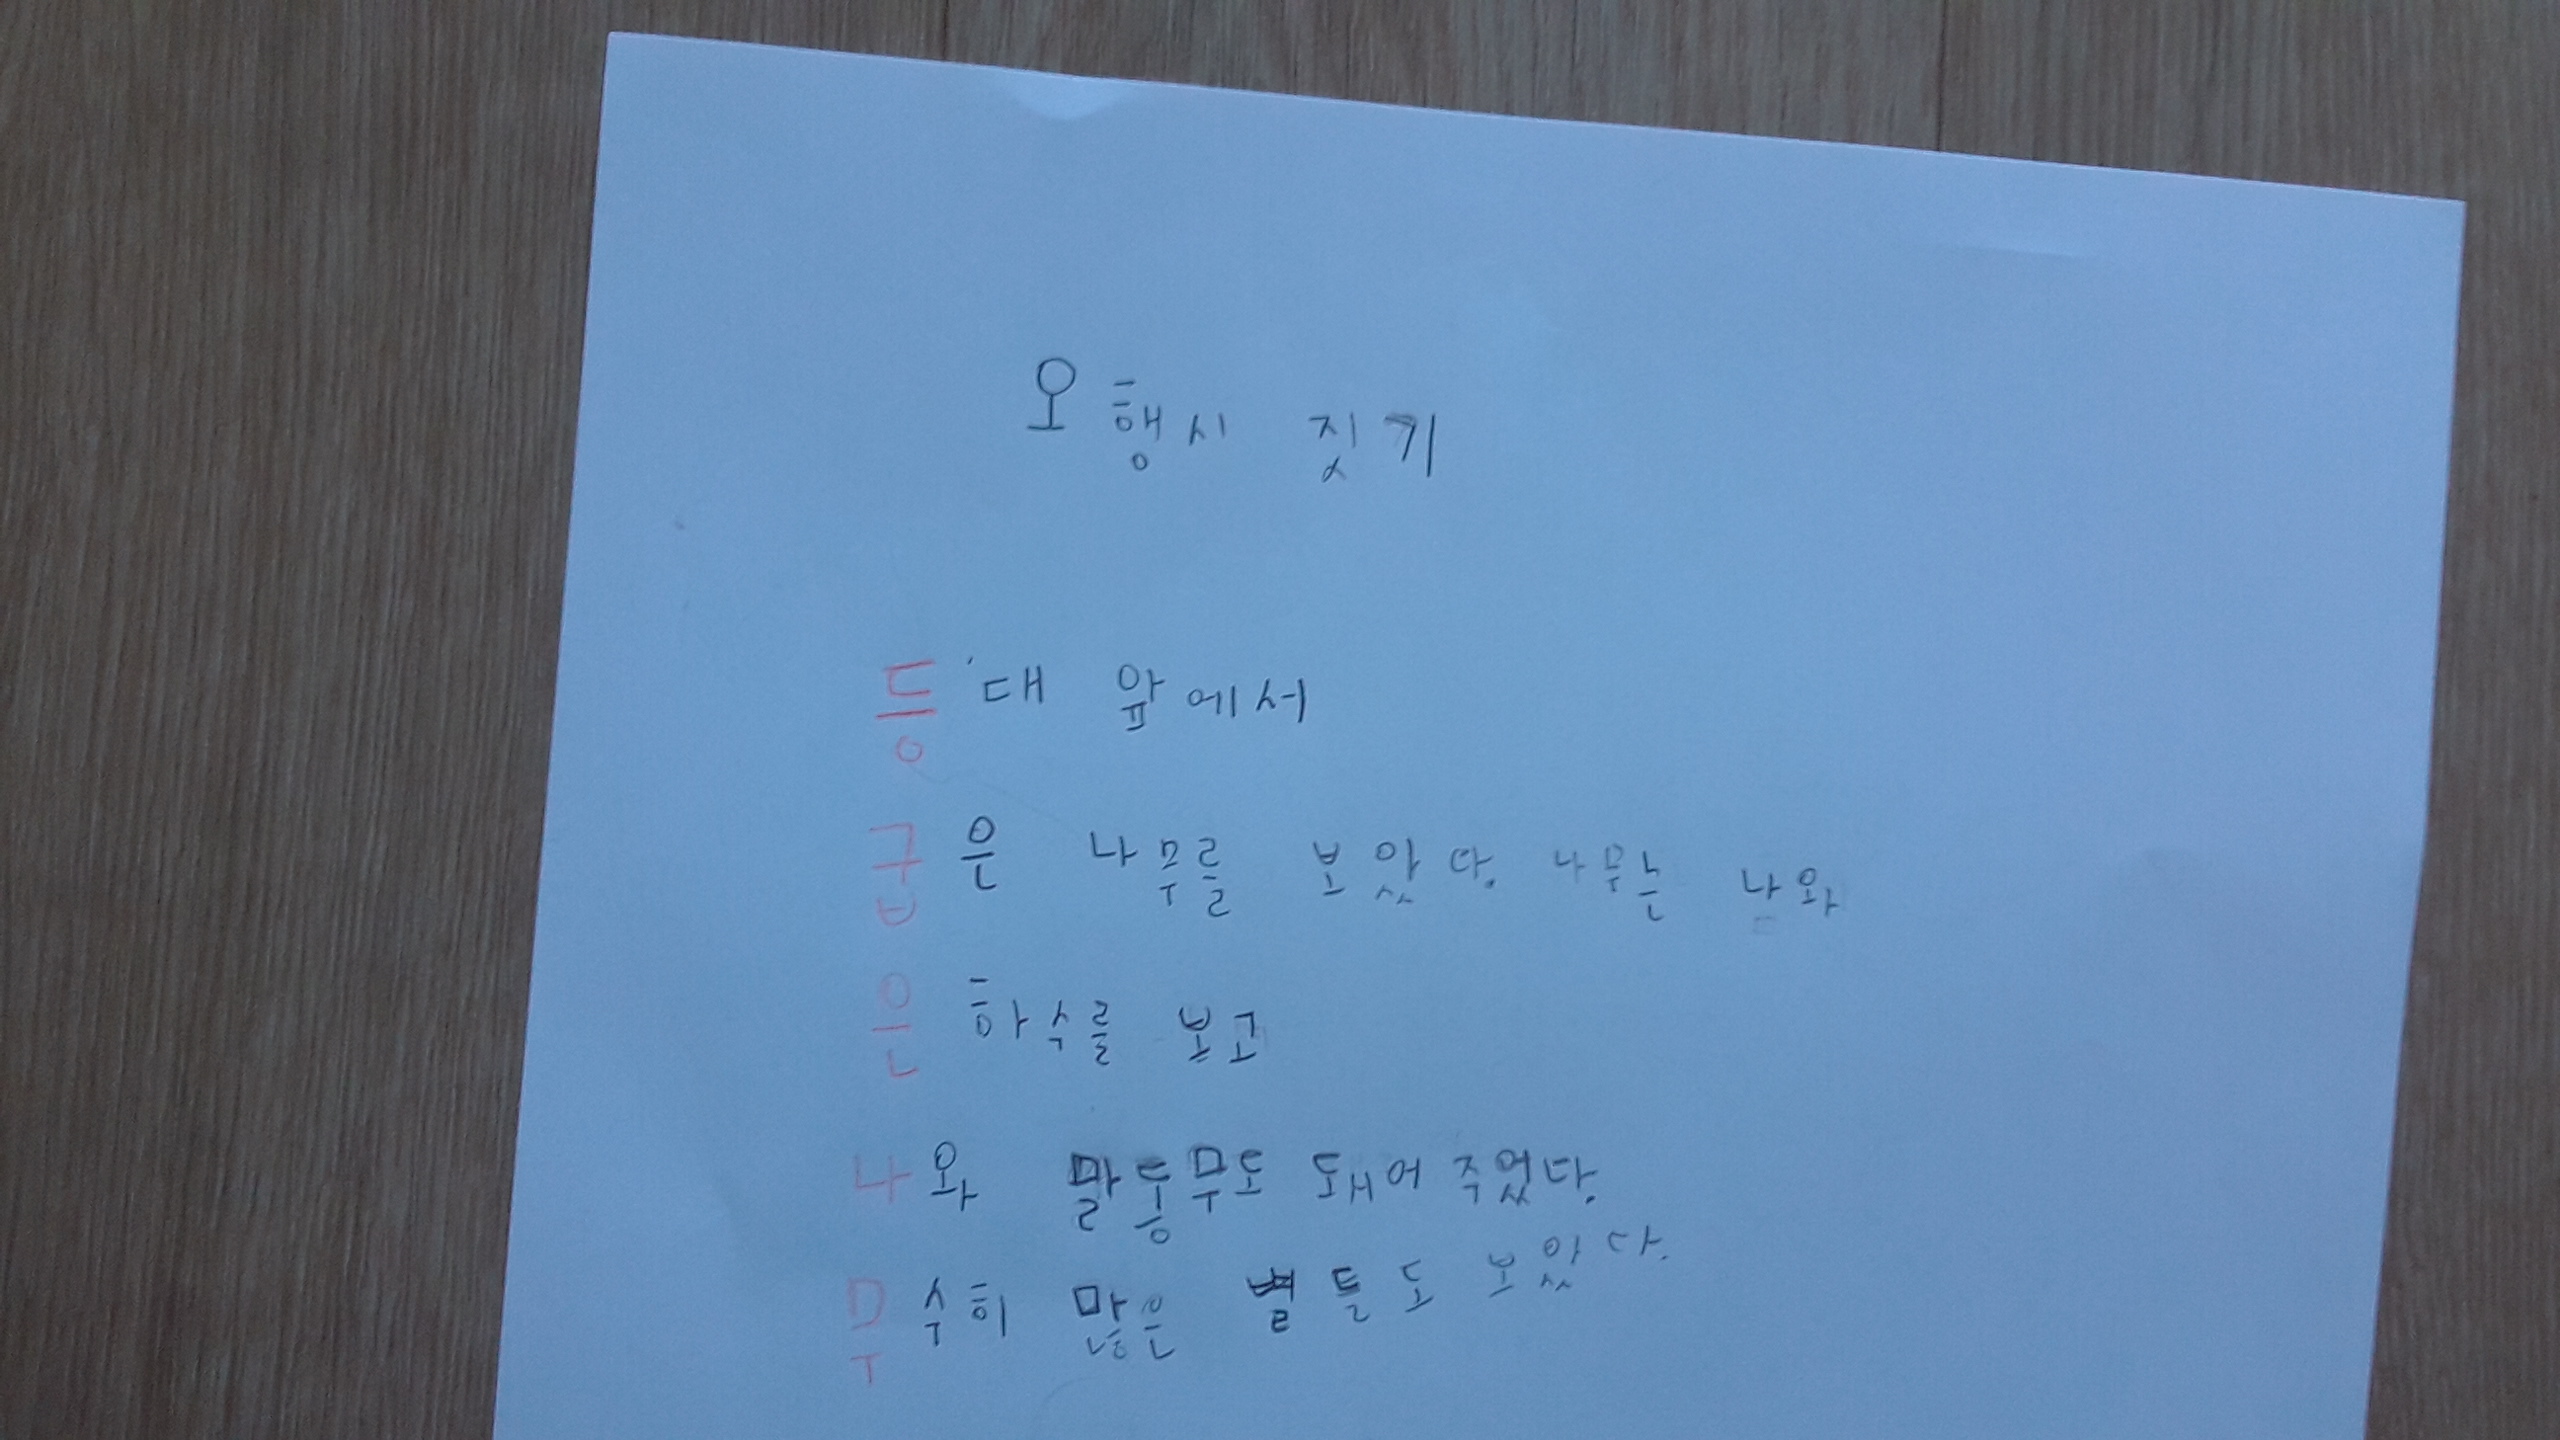 오행시 짓기
등대 앞에서
굽은 나무를 보았다. 나무는 나와
은하수를 보고
나와 말동무도 돼어 주었다.
무수히 많은 별들도 보았다.